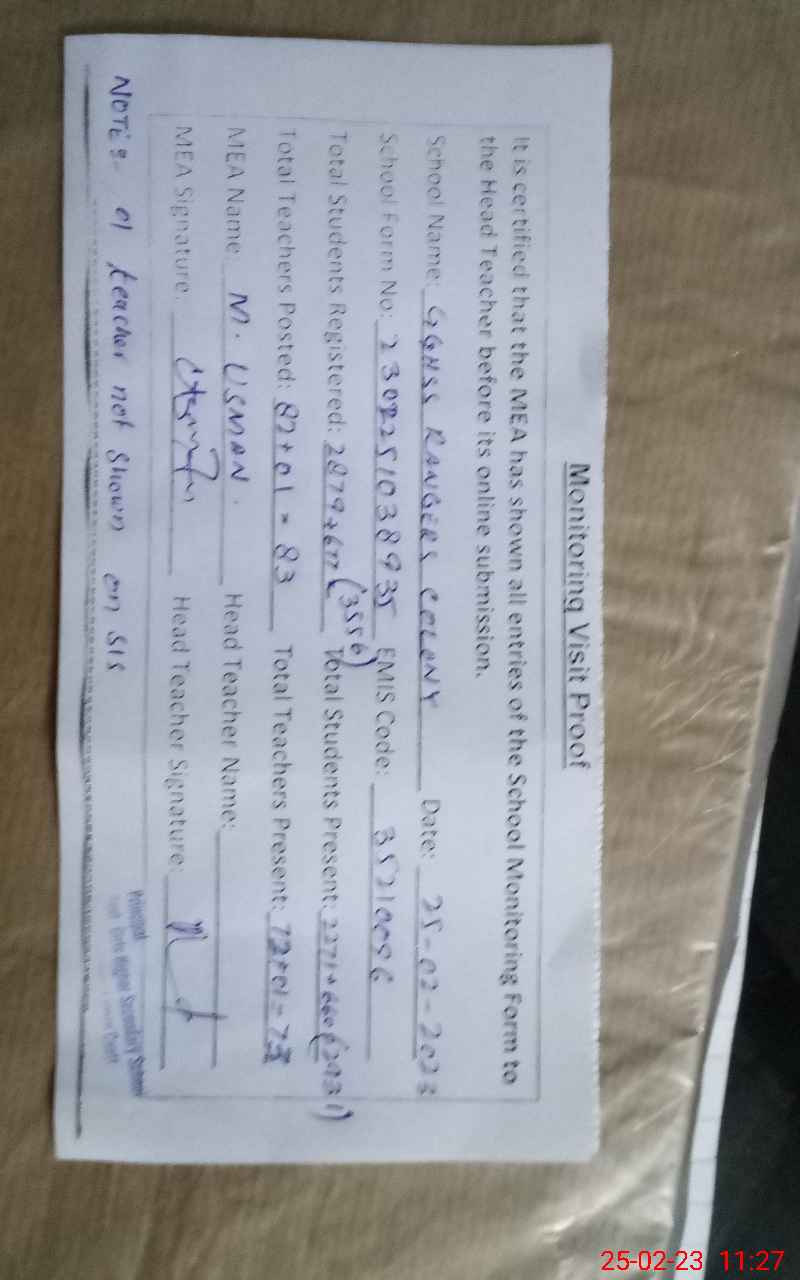 Monitoring Visit Proof
It is certified that the MEA has shown all entries of the School Monitoring Form to
the Head Teacher before its online submission.
School Name: GGHSS RANGERS COLONY Date: 25-02-2023
School Form No: 2302251038935 EMIS Code: 35210056
Total Students Registered: 2879+677 (3556) Total Students Present: 2271+660 (2931)
Total Teachers Posted: 82+01=83 Total Teachers Present: 72+01=73
MEA Name: M. USMAN. Head Teacher Name:
MEA Signature: Head Teacher Signature:
Principal
Girls Higher Secondary School
NOTE:- 01 teacher not shown on SIS
25-02-23 11:27